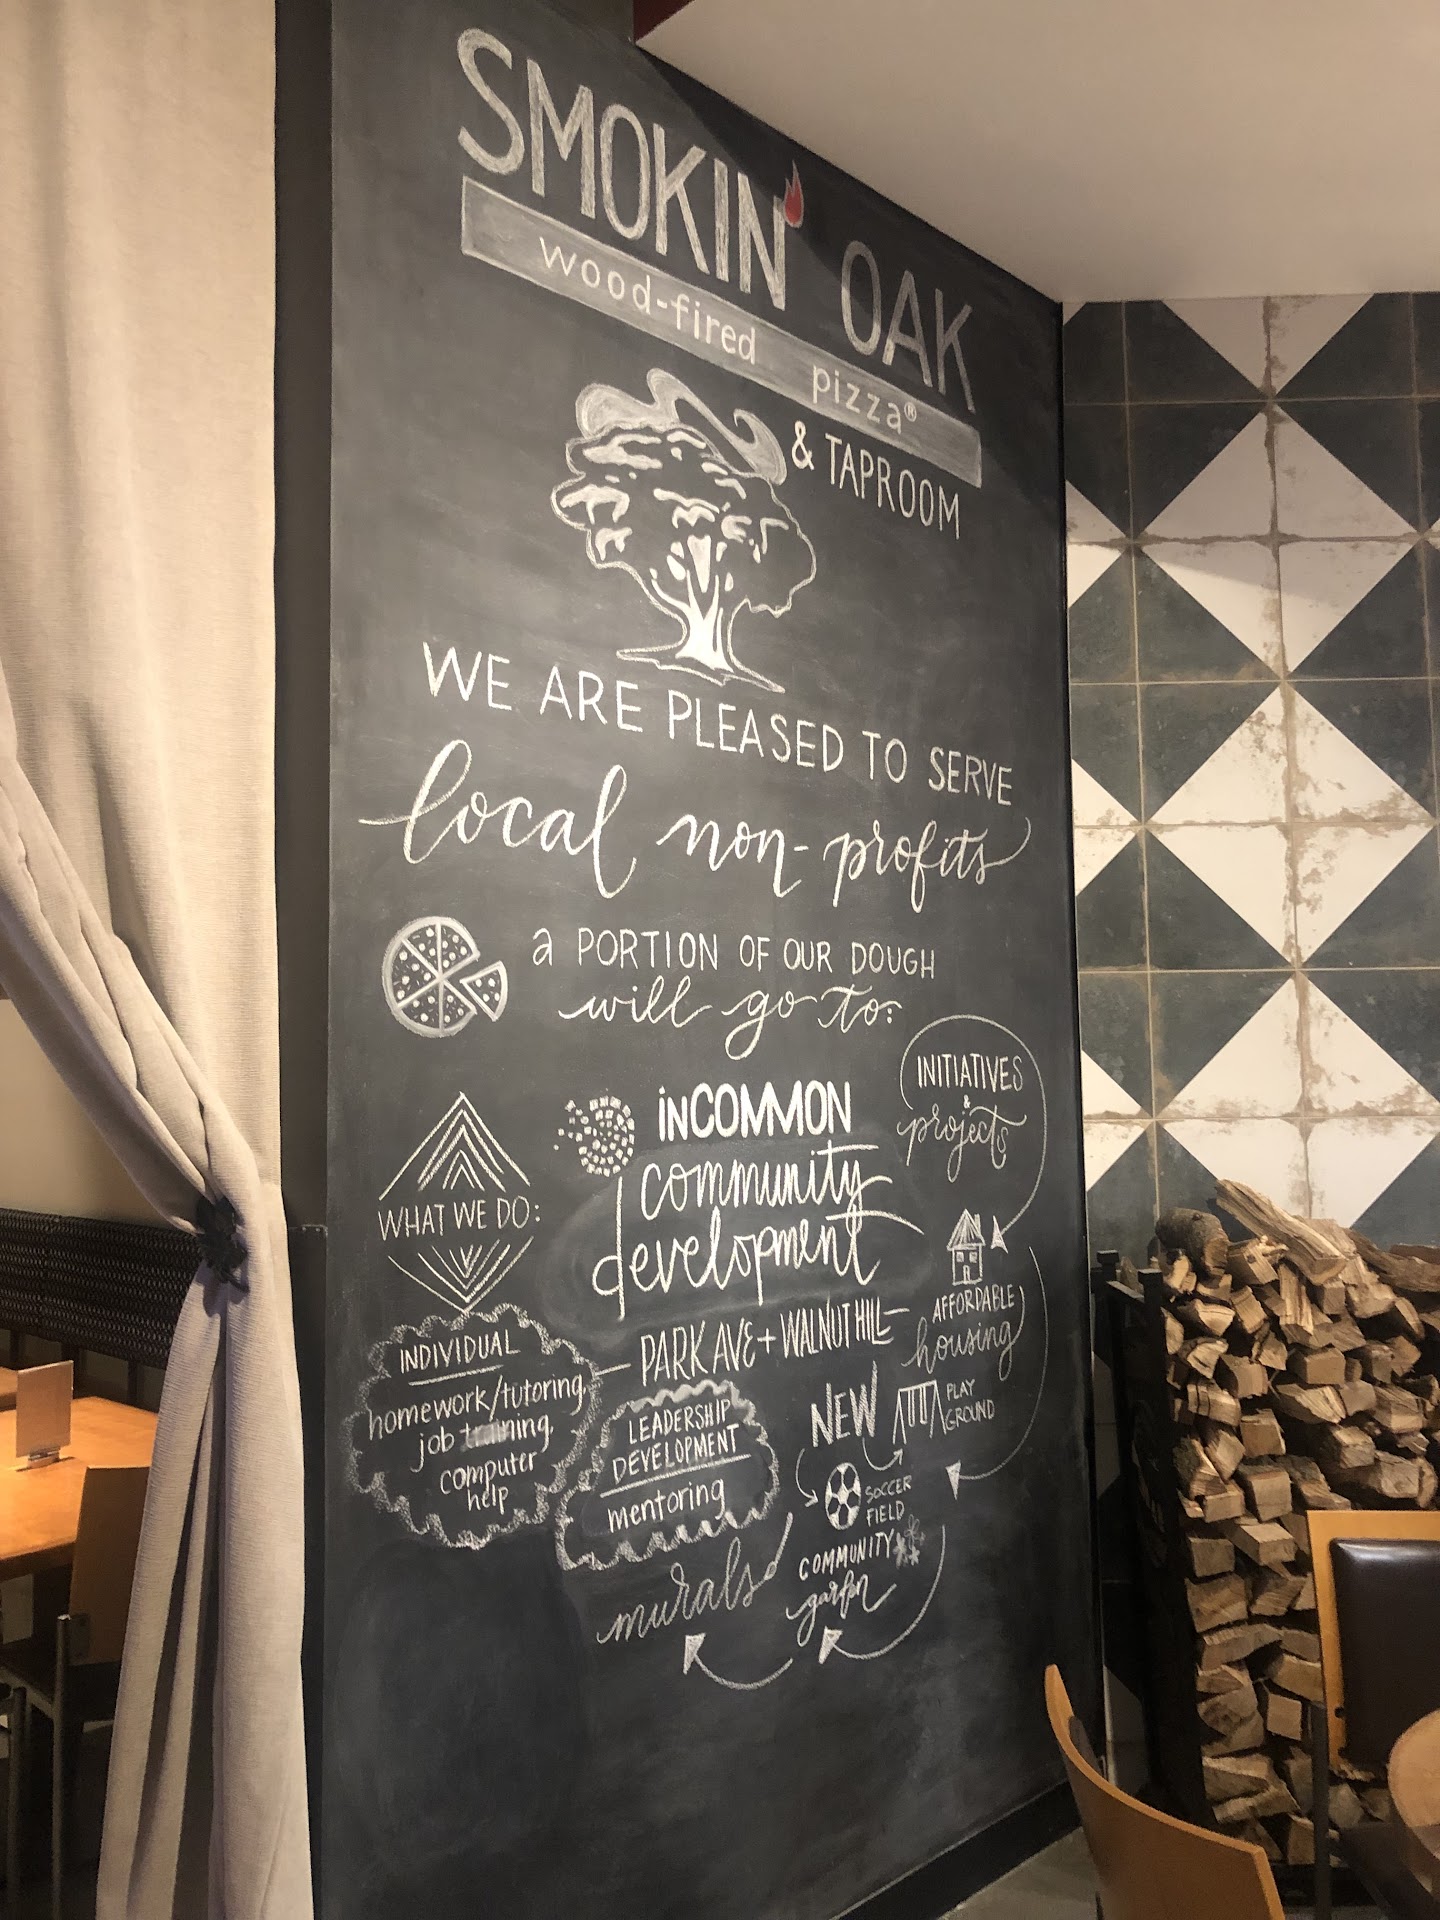 SMOKIN' OAK
wood-fired pizza®
& TAPROOM
WE ARE PLEASED TO SERVE
local non-profits
a PORTION OF OUR DOUGH
will go to:
inCOMMON
community
development
PARK AVE + WALNUT HILL
WHAT WE DO:
INDIVIDUAL
homework/tutoring,
job training,
computer
help
LEADERSHIP
DEVELOPMENT
mentoring
INITIATIVES
&
projects
AFFORDABLE
housing
NEW
PLAY
GROUND
SOCCER
FIELD
COMMUNITY
garden
murals